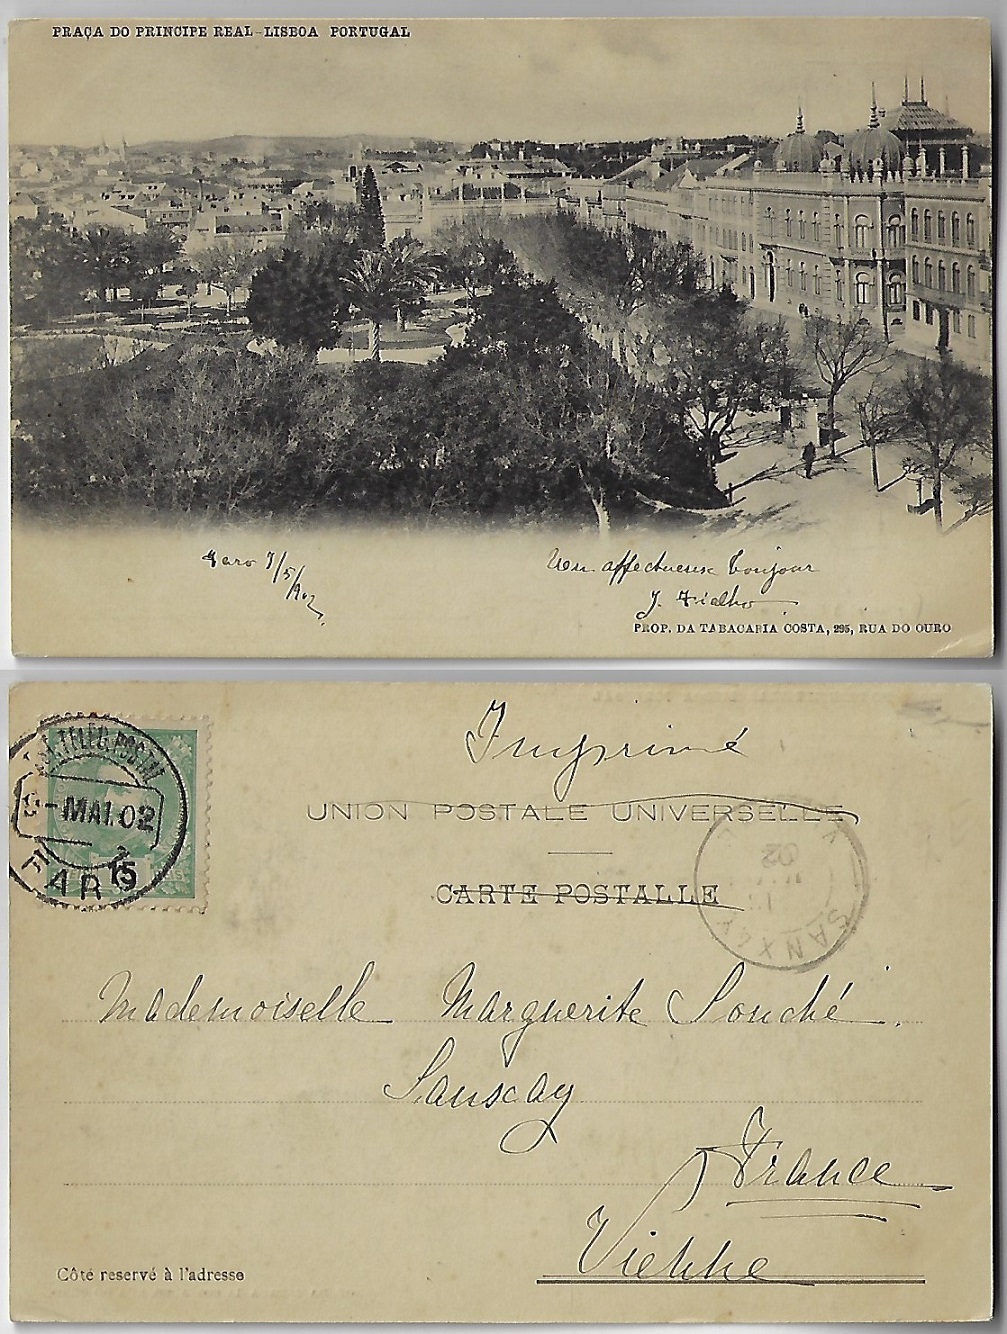 PRAÇA DO PRINCIPE REAL - LISBOA PORTUGAL
Faro 7/5/902
Un affectueux bonjour
J. Fialho
PROP. DA TABACARIA COSTA, 295, RUA DO OURO
TELEG. POSTAL
- MAI. 02
FARO
75
Imprimé
UNION POSTALE UNIVERSELLE
CARTE POSTALLE
02
SANXAY
Mademoiselle Marguerite Souché.
Sanxay
France
Vienne
Côté reservé à l'adresse